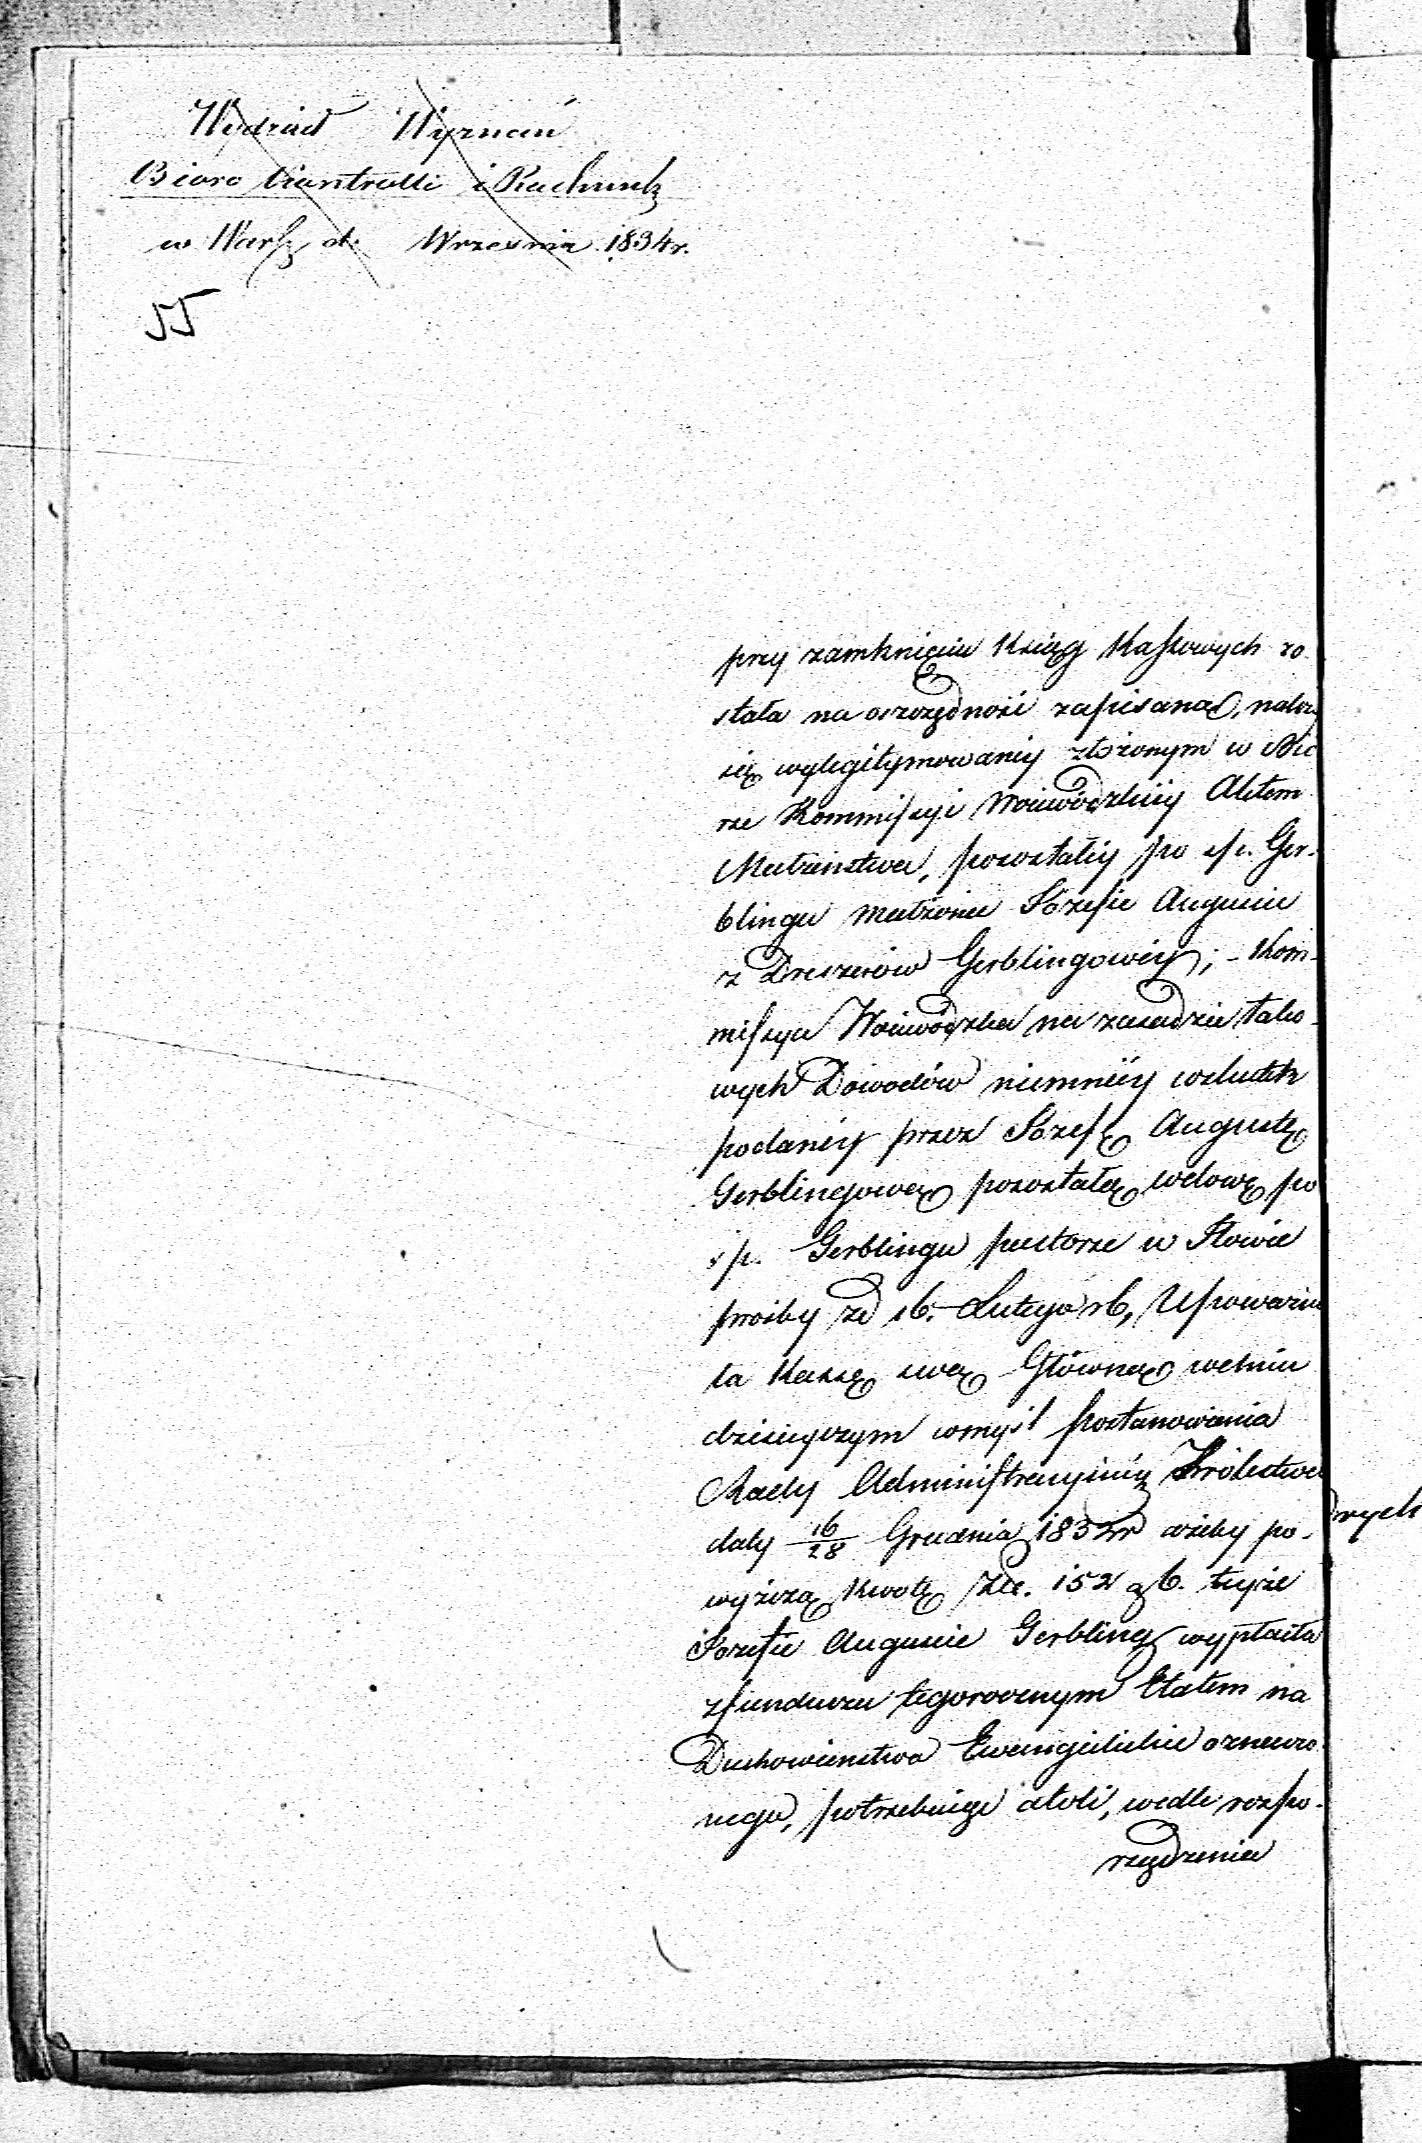 Wydział Wyznań
Biuro Kontrolli i Rachunk
w Warsz d. Września 1834 r.
55
przy zamknięciu Ksiąg Kassowych zo-
stała na oszczędność zapisaną,
się wylegitymowaniy złożonym w Bió
rze Kommissyi Woiewódzkiiy Aktem
Małżeństwa, pozostałéy po ś.p. Ger-
blingu małżonce Józefie Auguście
z Dreszerów Gerblingowéy; - Kom-
missya Woiewódzka na zasadzie tako-
wych Dowodów niemniéy wskutek
podanéy przez Józefę Augustę
Gerblingową pozostałą wdowę po
ś p. Gerblingu pastorze w Iłowie
prośby z d 16. Lutego r b, Upoważni
ła Kassę swą Główną w dniu
dzisieyszym w myśl postanowienia
Rady Administracyinéy Królestwa
daty 16/28 Grudnia 1832 r ażeby po-
wyższą Kwotę Złp. 152 g 6. teyże
Józefie Auguście Gerbling wypłaciła
z funduszu tegorocznym Etatem na
Duchowieństwo Ewangielickie oznaczo-
nego, potrzebuige atoli, wedle rozpo-
rządzenia
wych